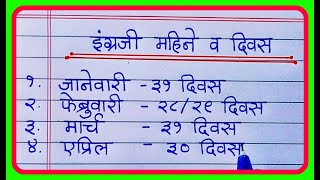 इंग्रजी महिने व दिवस
१. जानेवारी - ३१ दिवस
२. फेब्रुवारी - २८/२९ दिवस
३. मार्च - ३१ दिवस
४. एप्रिल - ३० दिवस